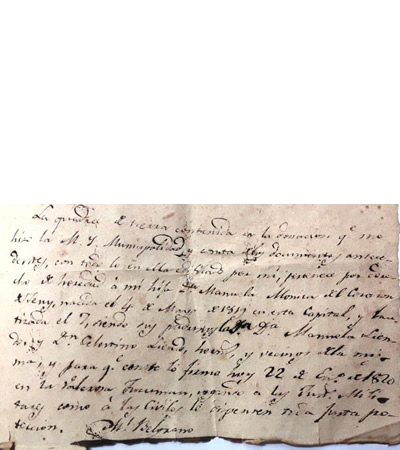 La quadra de tierra contenida en la donacion q.e me
hizo la M. Y. Municipalidad y consta de los documentos antece-
dentes, con todo lo en ella edificado por mi, pertenece por dere-
cho de heredad á mi hija D.a Manuela Monica del Corazon
de Jesus, nacida el 4 de Mayo de 1819 en esta Capital, y bau-
tizada el 7, siendo sus padrinos la D.a Manuela Liendo
y D.n Celestino Liendo, herm.s y vecinos de la mis-
ma, y para q.e conste lo firmo hoy 22 de En.o de 1820
en la Valerosa Tucuman, á las Just. Milita-
res como á las Civiles le dispensen toda justa pro-
teccion. M.l Belgrano